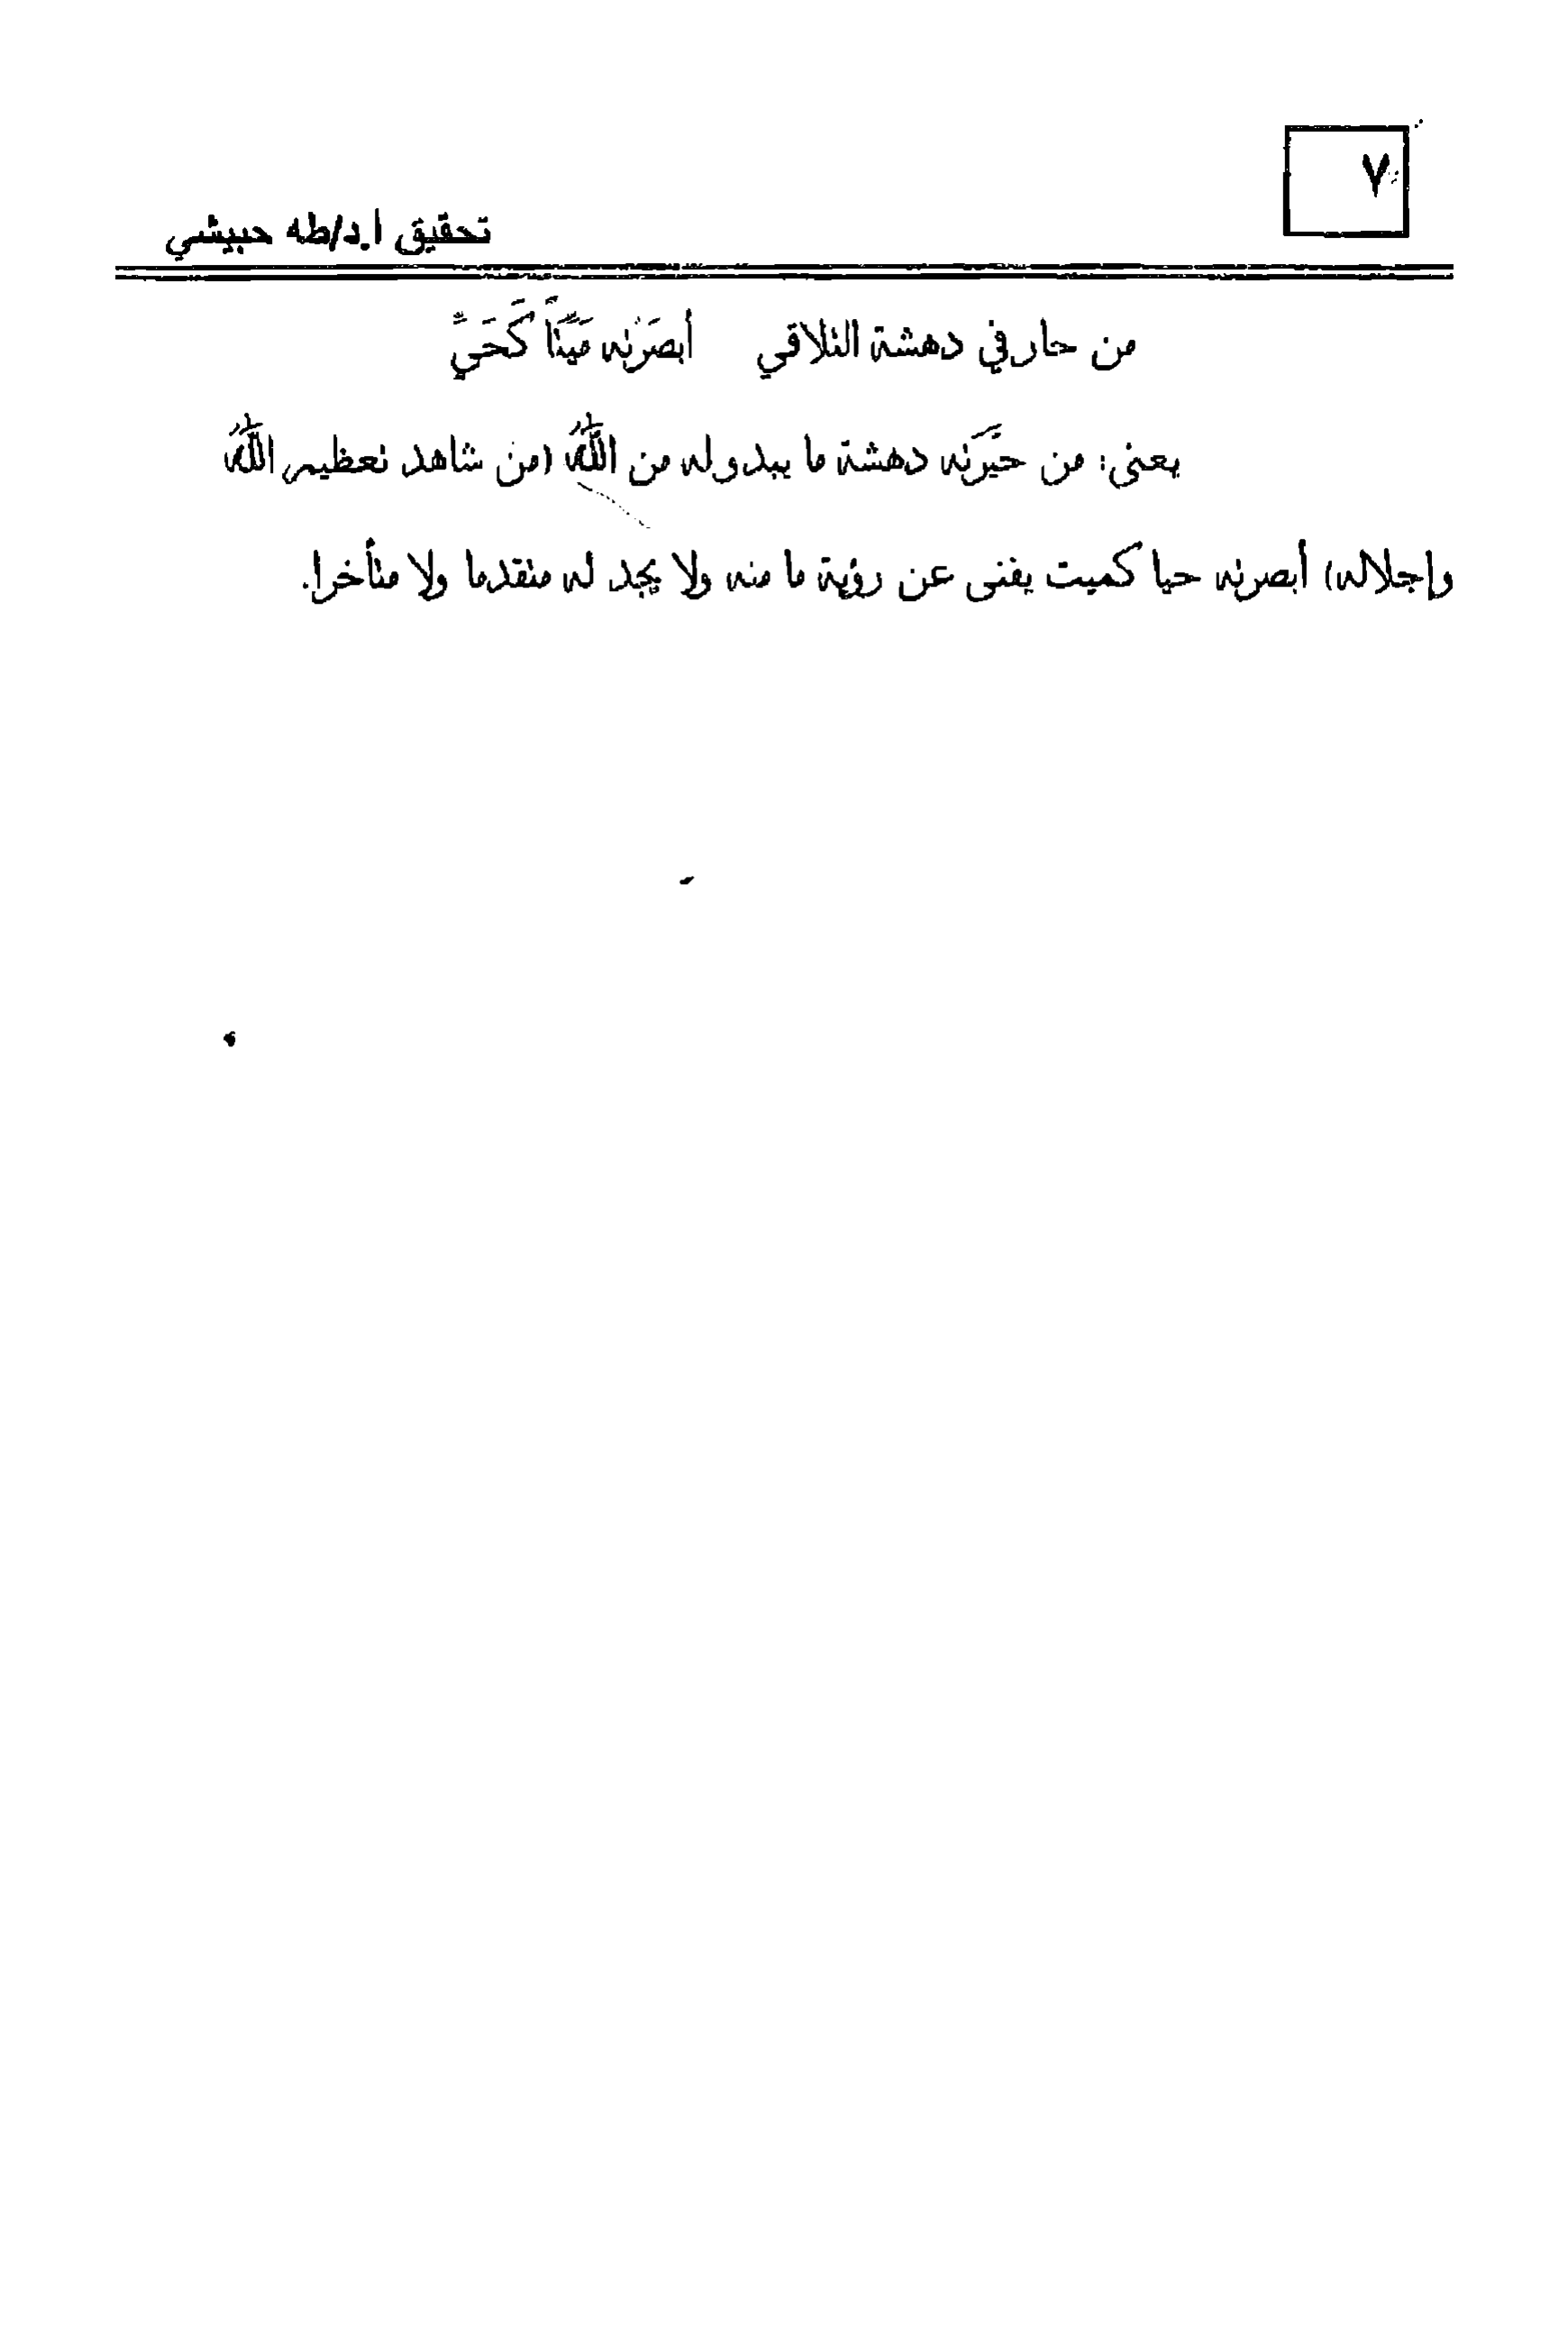 ٧
تحقيق ا.د/طه حبيشي
من حار في دهشة التلاقي أبصَرْته مَيِّتاً كَحَيِّ
يعنى: من حيَّرَته دهشة ما يبدو له من اللَّهُ (من شاهد تعظيم اللَّهُ
وإجلاله) أبصرته حيا كميت يفنى عن رؤية ما منه ولا يجد له متقدما ولا متأخرا.